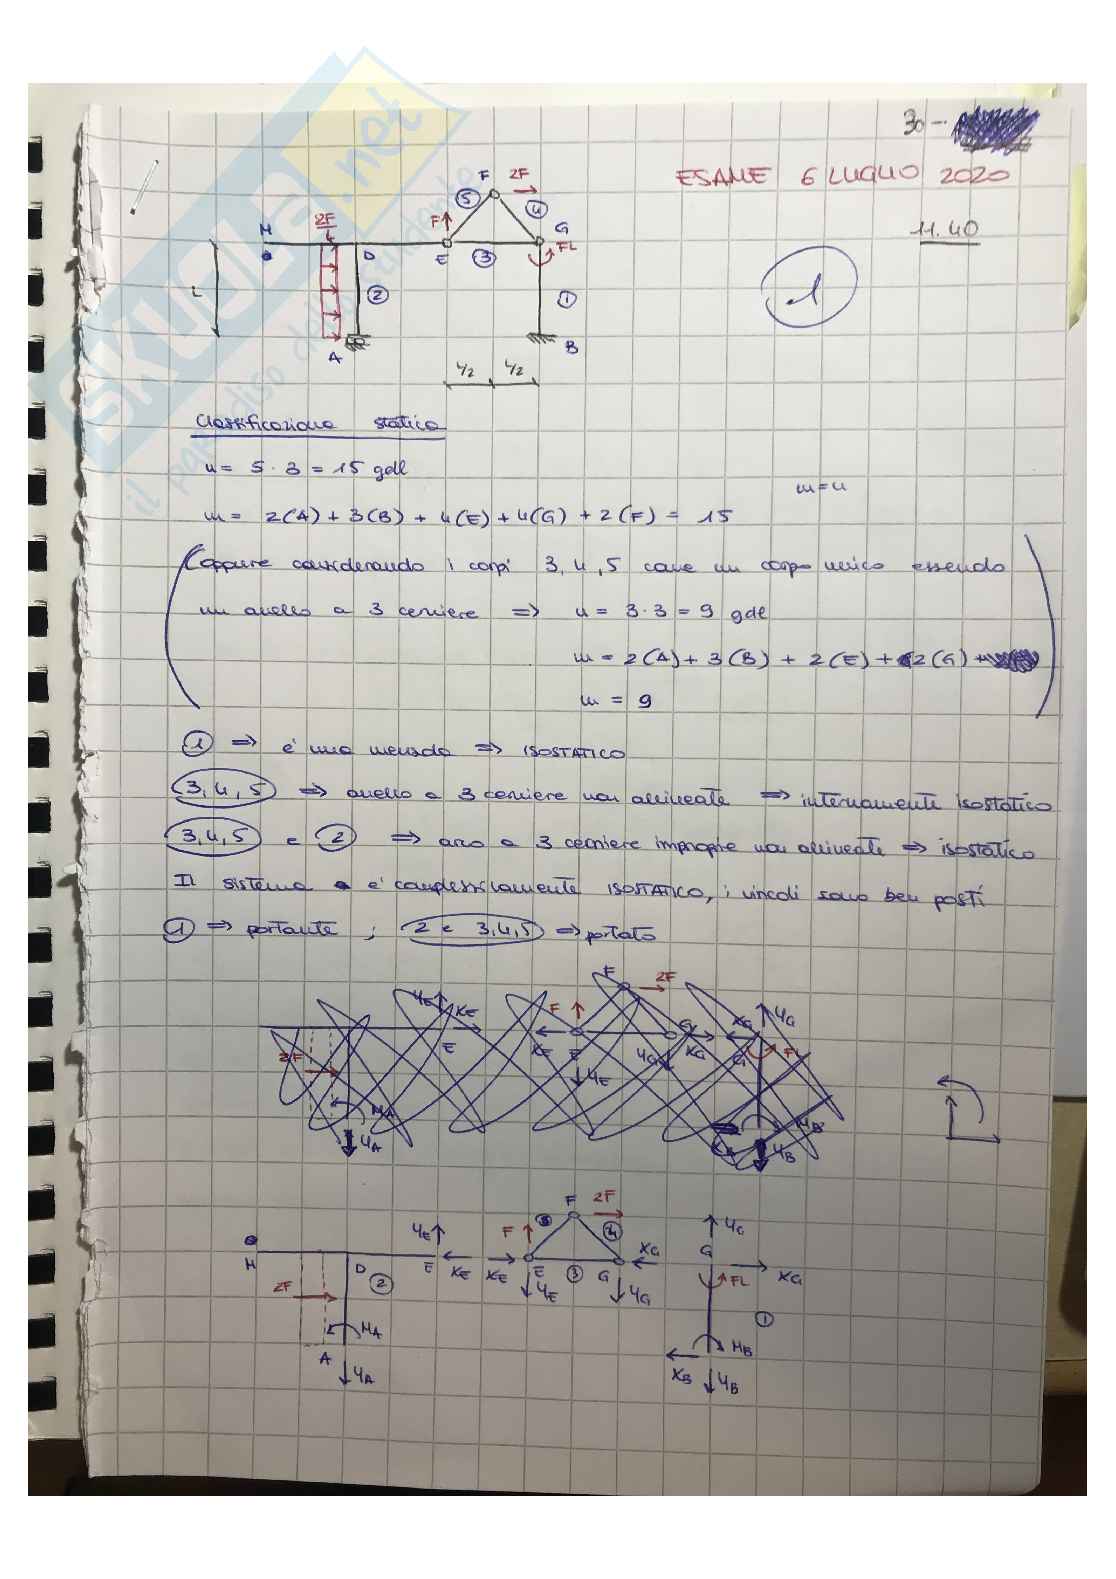 30-
ESAME 6 LUGLIO 2020
11.40
1
F 2F
5 4
F
H 2F/L D E 3 G FL
L 2 1
A B
L/2 L/2
Classificazione statica
n = 5 · 3 = 15 gdl
m = n
m = 2(A) + 3(B) + 4(E) + 4(G) + 2(F) = 15
(oppure considerando i corpi 3, 4, 5 come un corpo unico essendo
un anello a 3 cerniere => n = 3 · 3 = 9 gdl
m = 2(A) + 3(B) + 2(E) + 2(G)
m = 9
1 => è una mensola => ISOSTATICO
3, 4, 5 => anello a 3 cerniere non allineate => internamente isostatico
3, 4, 5 e 2 => arco a 3 cerniere improprie non allineate => isostatico
Il sistema è complessivamente ISOSTATICO, i vincoli sono ben posti
1 => portante ; 2 e 3, 4, 5 => portato
YE XE F F 2F YG
E XE E G XG XG G FL
2F YE YG
MA MB
YA XB YB
F 2F
YE F 4 YG
H D E XE XE E 3 G XG G XG
2 YE YG FL
2F MA 1
A YA MB
XB YB
SKUOLA.net
il paradiso dello studente